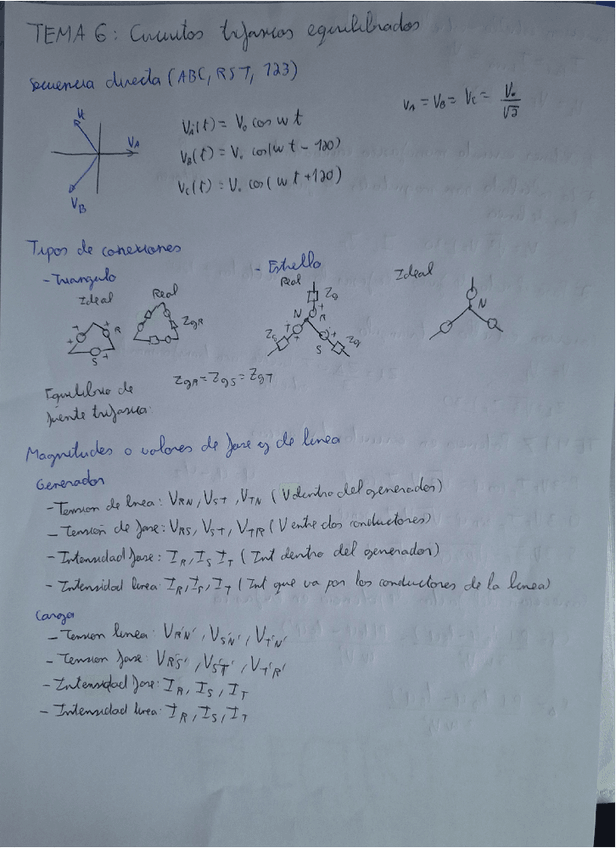 TEMA 6: Circuitos trifasicos equilibrados
Secuencia directa (ABC, RST, 123)
Vc
VA
VB
VA(t) = V₀ cos wt
VB(t) = V₀ cos(wt - 120)
Vc(t) = V₀ cos(wt + 120)
VA = VB = VC = V₀/√2
Tipos de conexiones
- Triangulo
Ideal
Real
R
S
ZgR
- Estrella
Real
Zg
N
R
T
Zg
S
Zg
Ideal
N
Equilibrio de fuente trifasica
ZgR = ZgS = ZgT
Magnitudes o valores de fase y de linea
Generador
- Tension de linea: VRN, VST, VTN (V dentro del generador)
- Tensión de fase: VRS, VST, VTR (V entre dos conductores)
- Intensidad fase: IR, IS IT (Int dentro del generador)
- Intensidad linea: IR, IS, IT (Int que va por los conductores de la linea)
Carga
- Tension linea: VR'N', VS'N', VT'N'
- Tension fase: VR'S', VS'T', VT'R'
- Intensidad fase: IR, IS, IT
- Intensidad linea: IR, IS, IT